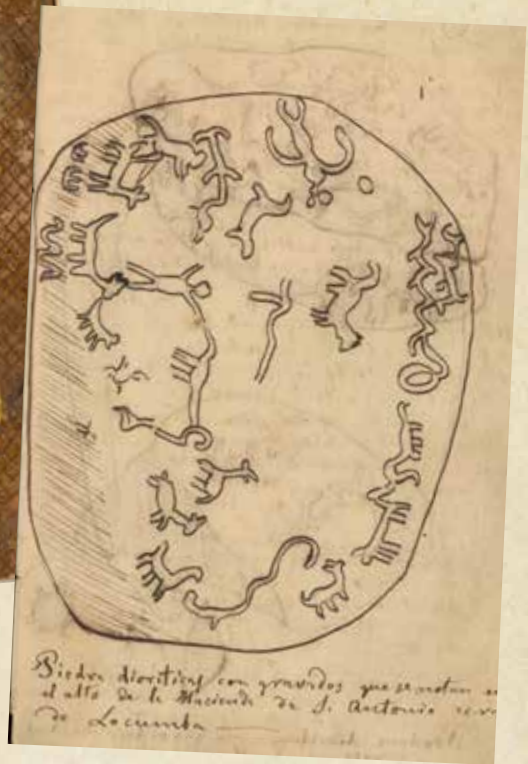 Piedra dioritica con gravados que se notan en
el alto de la Hacienda de S. Antonio cerca
de Locumba